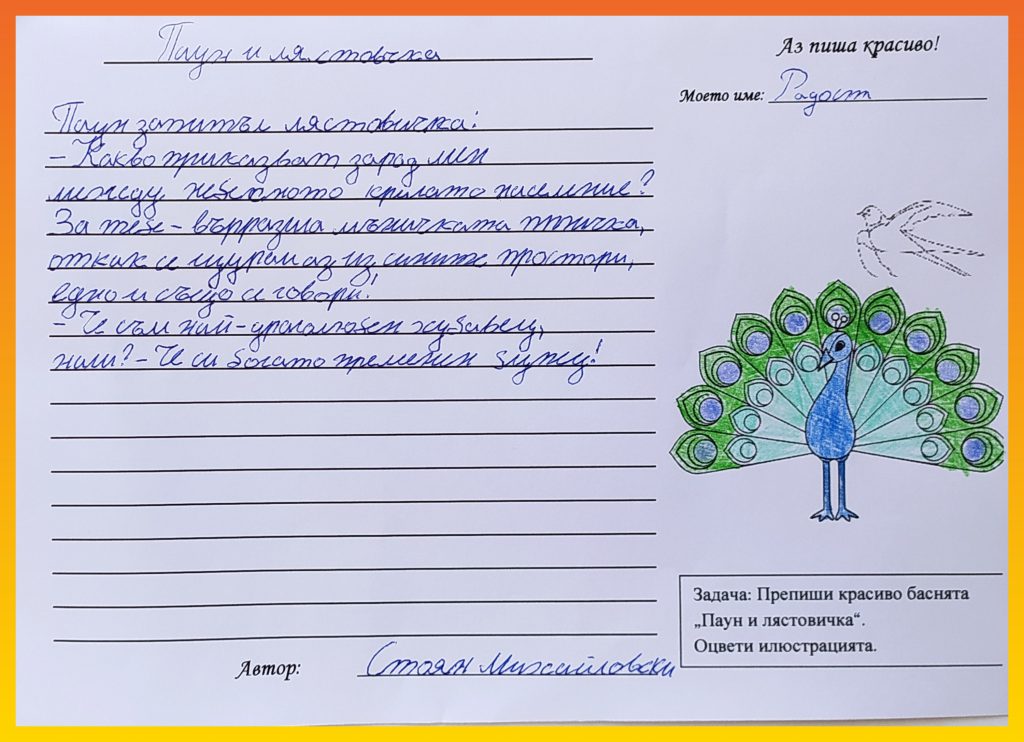 Паун и лястовчка
Аз пиша красиво!
Моето име: Радост
Паун запитъл лястовичка:
– Какво приказват зарад мен
между небесното крилато население?
За тебе – възразила мъничката птичка,
откак се щурам аз из сините простори,
едно и също се говори!
– Че съм най-прголюбен хубавец,
нали? – Че си богато пременен глупец!
Автор: Стоян Михайловски
Задача: Препиши красиво баснята
„Паун и лястовичка“.
Оцвети илюстрацията.